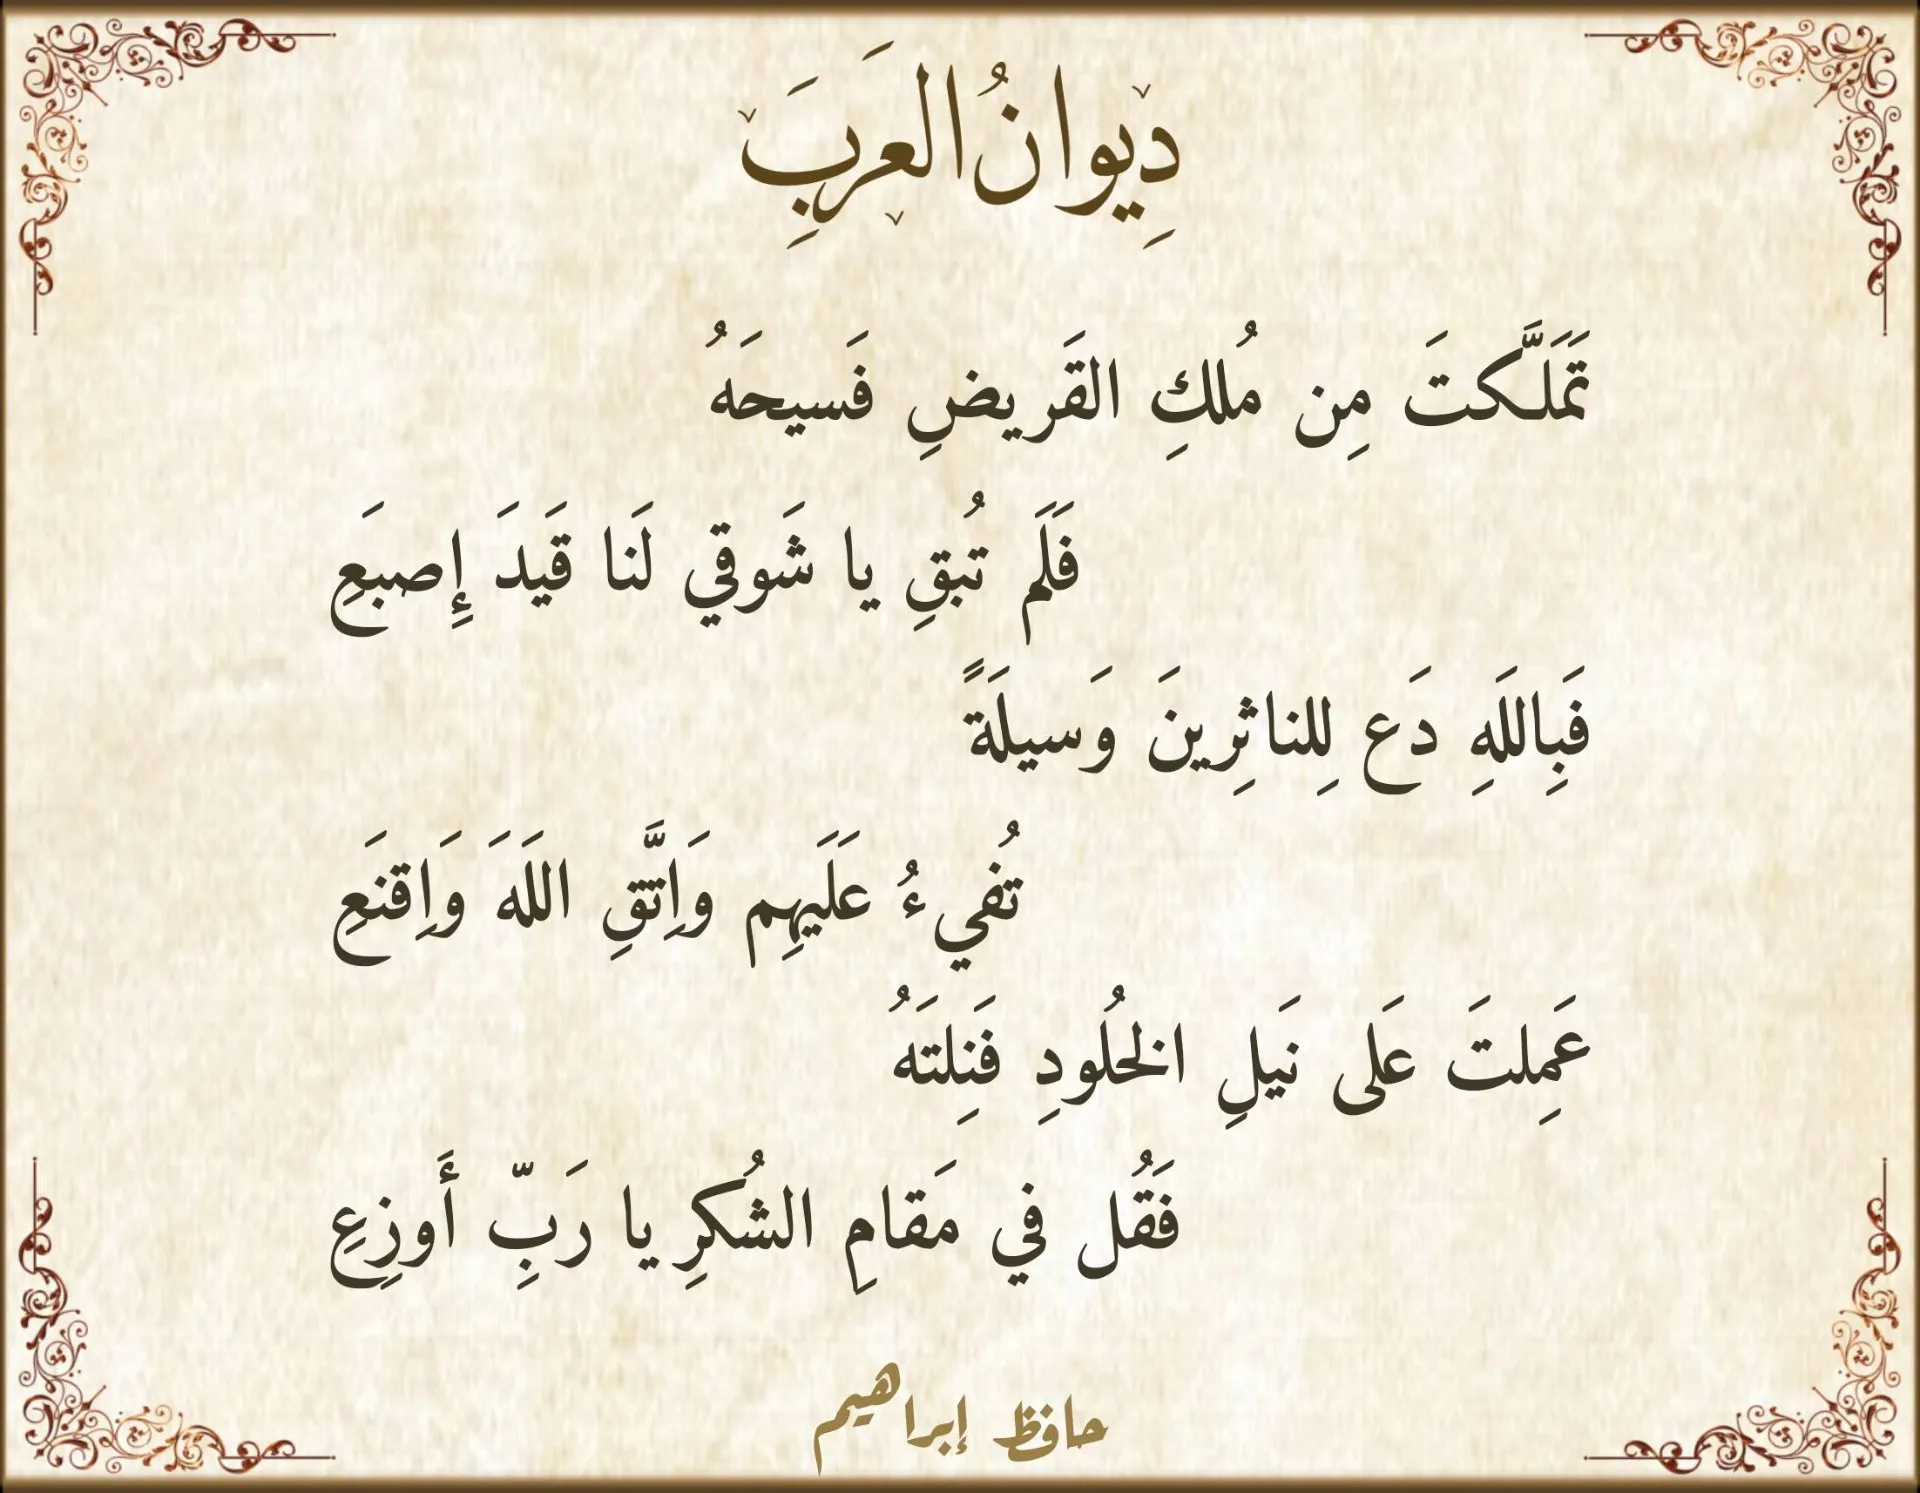 دِيوانُ العَرَبِ
تَمَلَّكتَ مِن مُلكِ القَريضِ فَسيحَهُ
فَلَم تُبقِ يا شَوقي لَنا قَيدَ إِصبَعِ
فَبِاللَهِ دَع لِلناثِرينَ وَسيلَةً
تُفيءُ عَلَيهِم وَاِتَّقِ اللَهَ وَاِقنَعِ
عَمِلتَ عَلى نَيلِ الخُلودِ فَنِلتَهُ
فَقُل في مَقامِ الشُكرِ يا رَبِّ أَوزِعِ
حافظ إبراهيم